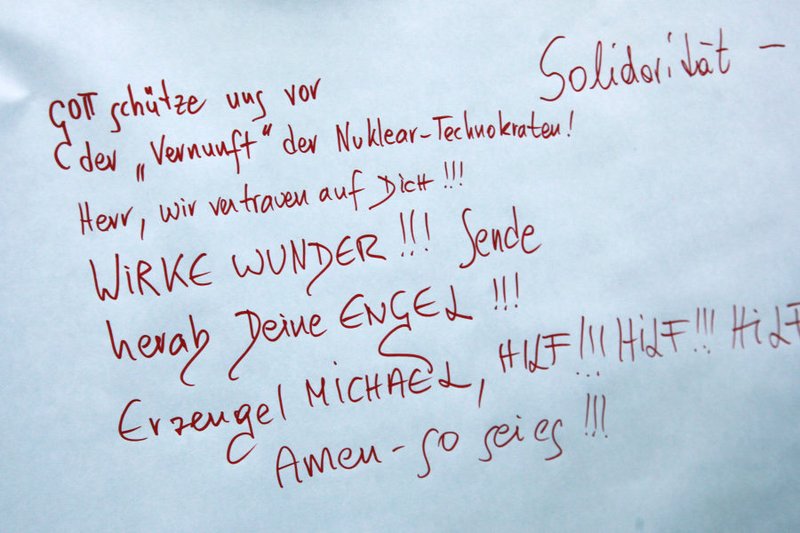 Solidarität –
GOTT schütze uns vor
der „Vernunft" der Nuklear-Technokraten!
Herr, wir vertrauen auf DICH!!!
WIRKE WUNDER!!! Sende
herab Deine ENGEL!!!
Erzengel MICHAEL, HILF!!! HILF!!! HILF
Amen - so sei es!!!